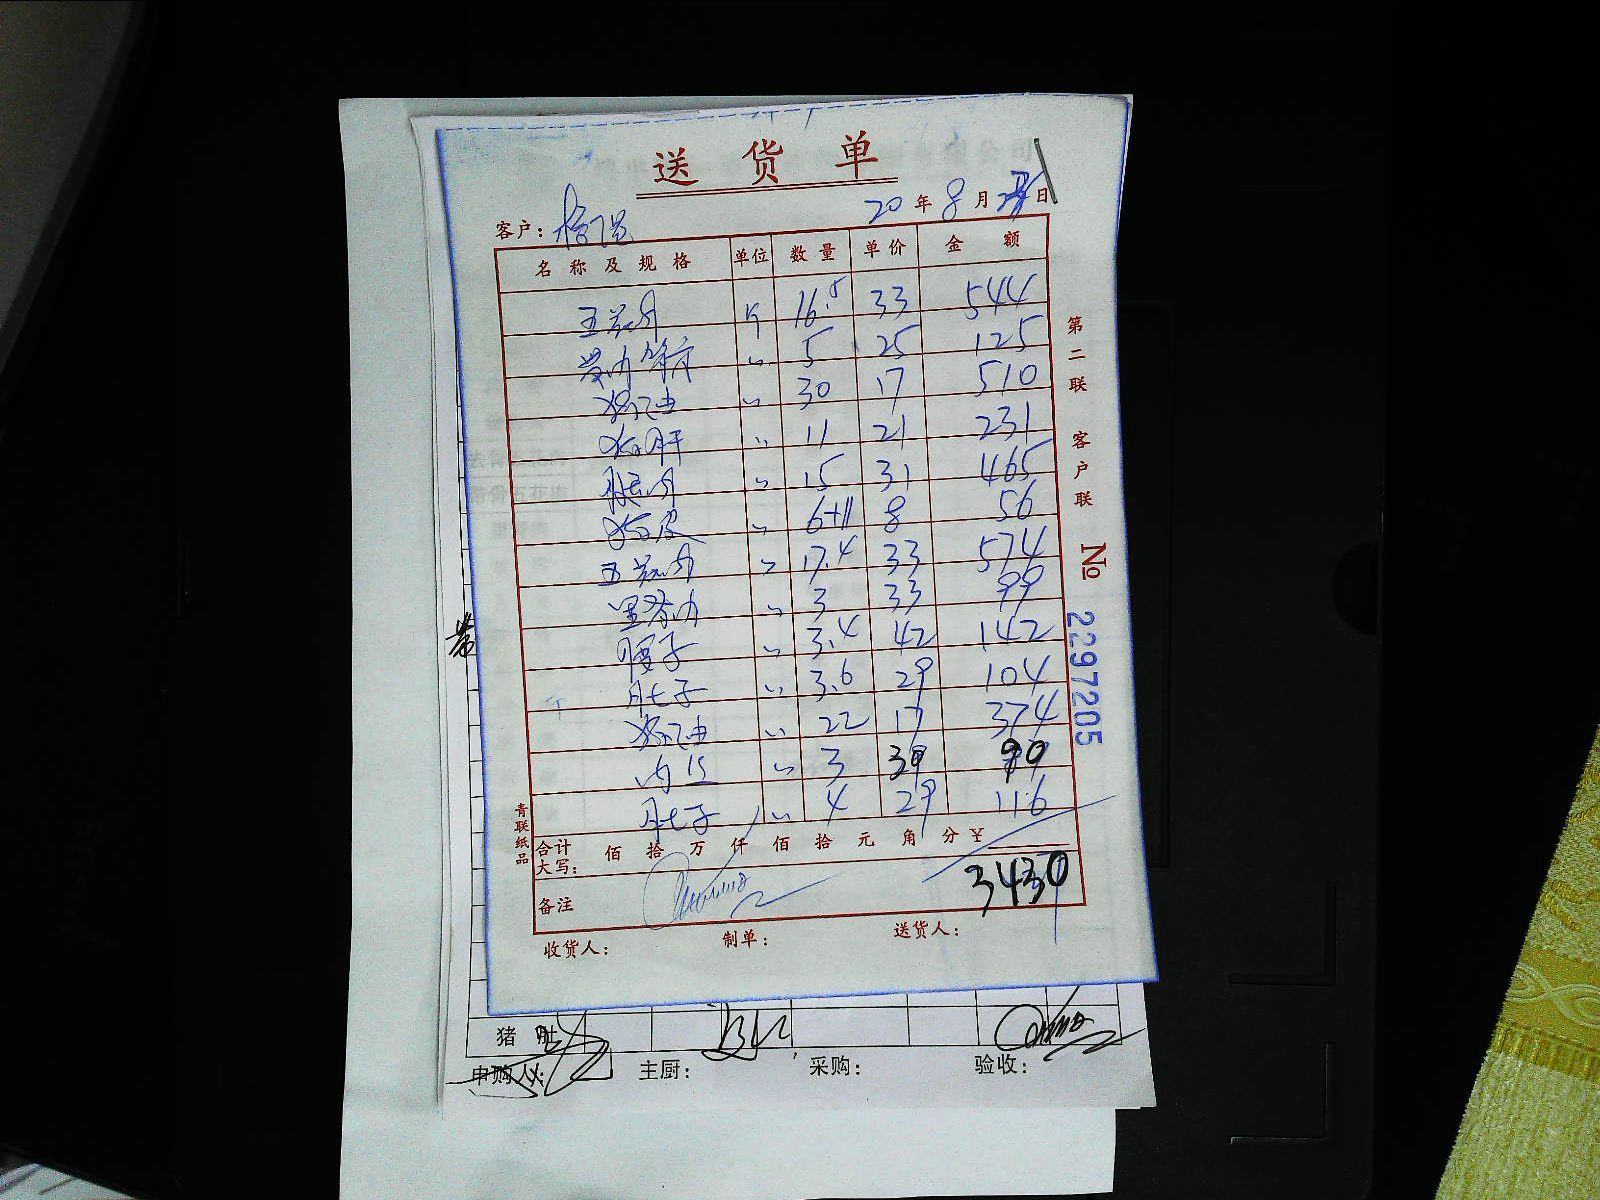 送货单
客户： 20年8月 日
名称及规格 单位 数量 单价 金额
五花肉 斤 16.5 33 544
5 25 125
猪油 〃 30 17 510
猪肝 〃 11 21 231
腿肉 〃 15 31 465
猪皮 〃 6+11 8 56
五花肉 〃 17.4 33 574
里脊肉 〃 3 33 99
腰子 〃 3.4 42 142
肚子 〃 3.6 29 104
猪油 〃 22 17 374
3 90
肚子 〃 4 29 116
合计大写： 佰 拾 万 仟 佰 拾 元 角 分 ¥
3430
备注
收货人： 制单： 送货人：
第二联 客户联 № 2297205
青联纸品
带
猪肚
申购人： 主厨： 采购： 验收：